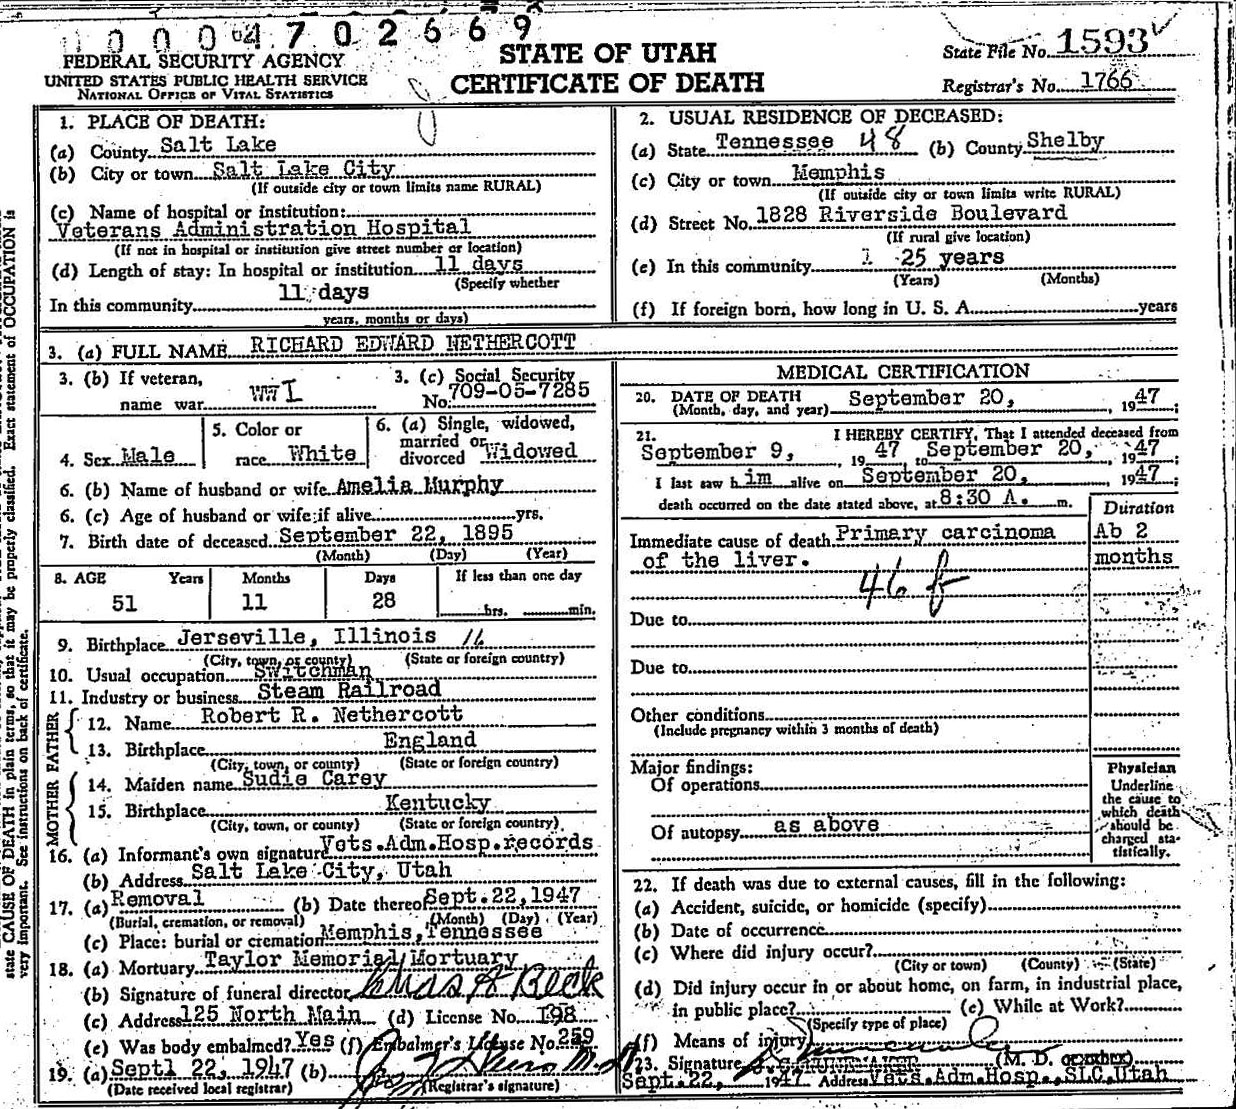 0 0 0 4 7 0 2 6 6 9
FEDERAL SECURITY AGENCY
UNITED STATES PUBLIC HEALTH SERVICE
NATIONAL OFFICE OF VITAL STATISTICS
STATE OF UTAH
CERTIFICATE OF DEATH
State File No. 1593
Registrar's No. 1766
1. PLACE OF DEATH:
(a) County Salt Lake
(b) City or town Salt Lake City
(If outside city or town limits name RURAL)
(c) Name of hospital or institution:
Veterans Administration Hospital
(If not in hospital or institution give street number or location)
(d) Length of stay: In hospital or institution 11 days
(Specify whether
In this community 11 days
years, months or days)
2. USUAL RESIDENCE OF DECEASED:
(a) State Tennessee 48 (b) County Shelby
(c) City or town Memphis
(If outside city or town limits write RURAL)
(d) Street No. 1828 Riverside Boulevard
(If rural give location)
(e) In this community 25 years
(Years) (Months)
(f) If foreign born, how long in U. S. A. years
3. (a) FULL NAME RICHARD EDWARD NETHERCOTT
3. (b) If veteran, name war WW I
3. (c) Social Security No. 709-05-7285
4. Sex Male
5. Color or race White
6. (a) Single, widowed, married or divorced Widowed
6. (b) Name of husband or wife Amelia Murphy
6. (c) Age of husband or wife if alive yrs.
7. Birth date of deceased September 22, 1895
(Month) (Day) (Year)
8. AGE Years Months Days If less than one day
51 11 28 hrs. min.
9. Birthplace Jerseville, Illinois 16
(City, town, or county) (State or foreign country)
10. Usual occupation Switchman
11. Industry or business Steam Railroad
FATHER
12. Name Robert R. Nethercott
13. Birthplace England
(City, town, or county) (State or foreign country)
MOTHER
14. Maiden name Sudie Carey
15. Birthplace Kentucky
(City, town, or county) (State or foreign country)
16. (a) Informant's own signature Vets.Adm.Hosp.records
(b) Address Salt Lake City, Utah
17. (a) Removal (b) Date thereof Sept.22,1947
(Burial, cremation, or removal) (Month) (Day) (Year)
(c) Place: burial or cremation Memphis, Tennessee
18. (a) Mortuary Taylor Memorial Mortuary
(b) Signature of funeral director Chas A Beck
(c) Address 125 North Main (d) License No. 198
(e) Was body embalmed? Yes (f) Embalmer's License No. 259
19. (a) Septl 22, 1947 (b)
(Date received local registrar) (Registrar's signature)
MEDICAL CERTIFICATION
20. DATE OF DEATH September 20, 1947;
(Month, day, and year)
21. I HEREBY CERTIFY, That I attended deceased from
September 9, 1947 to September 20, 1947;
I last saw him alive on September 20, 1947;
death occurred on the date stated above, at 8:30 A. m.
Duration
Immediate cause of death Primary carcinoma Ab 2
of the liver. months
46 f
Due to
Due to
Other conditions
(Include pregnancy within 3 months of death)
Major findings:
Of operations
Of autopsy as above
Physician
Underline
the cause to
which death
should be
charged sta-
tistically.
22. If death was due to external causes, fill in the following:
(a) Accident, suicide, or homicide (specify)
(b) Date of occurrence
(c) Where did injury occur?
(City or town) (County) (State)
(d) Did injury occur in or about home, on farm, in industrial place,
in public place? (e) While at Work?
(Specify type of place)
(f) Means of injury
23. Signature (M. D.
Sept.22, 1947 Address Vets.Adm.Hosp.,SLC,Utah
state CAUSE OF DEATH in plain terms, so that it may be properly classified. Exact statement of OCCUPATION is
very important. See instructions on back of certificate.